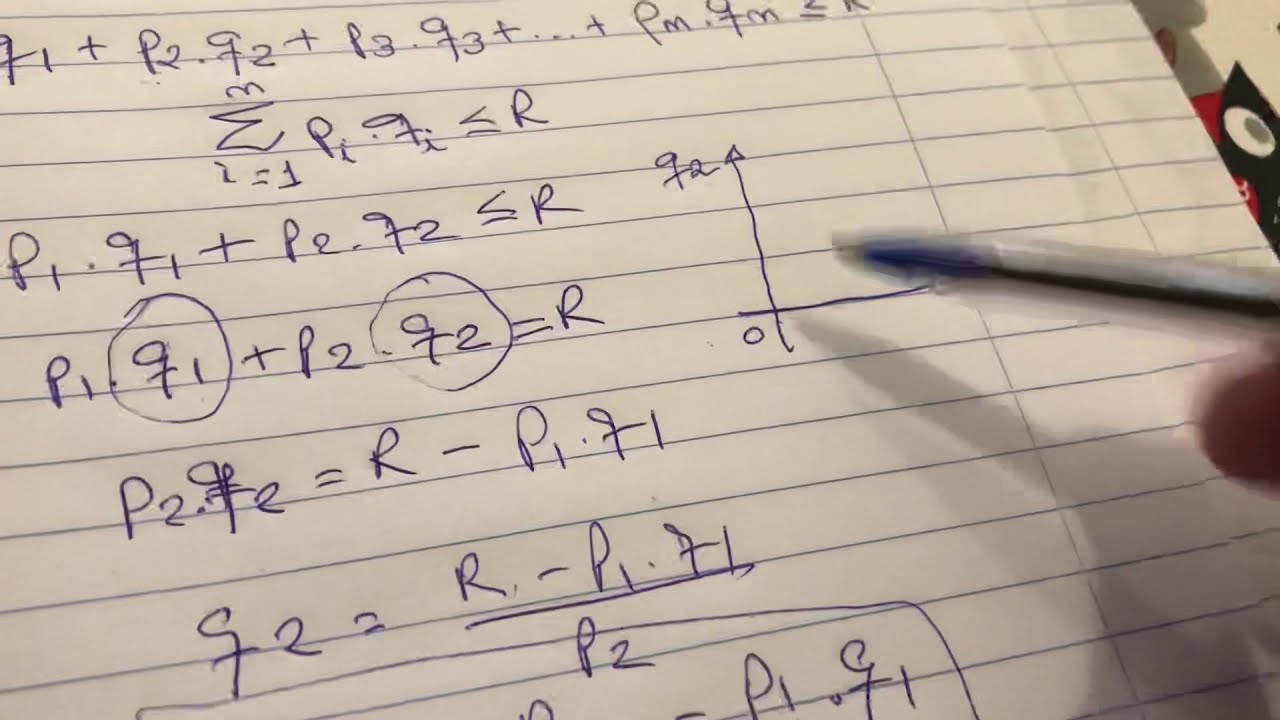 q1 + P2.q2 + P3.q3 + ... + Pn.qn ≤ R
n
∑ Pi.qi ≤ R
i=1
P1.q1 + P2.q2 ≤ R
P1.q1 + P2.q2 = R
P2.q2 = R - P1.q1
q2 = R - P1.q1
P2
- P1.q1
q2
0